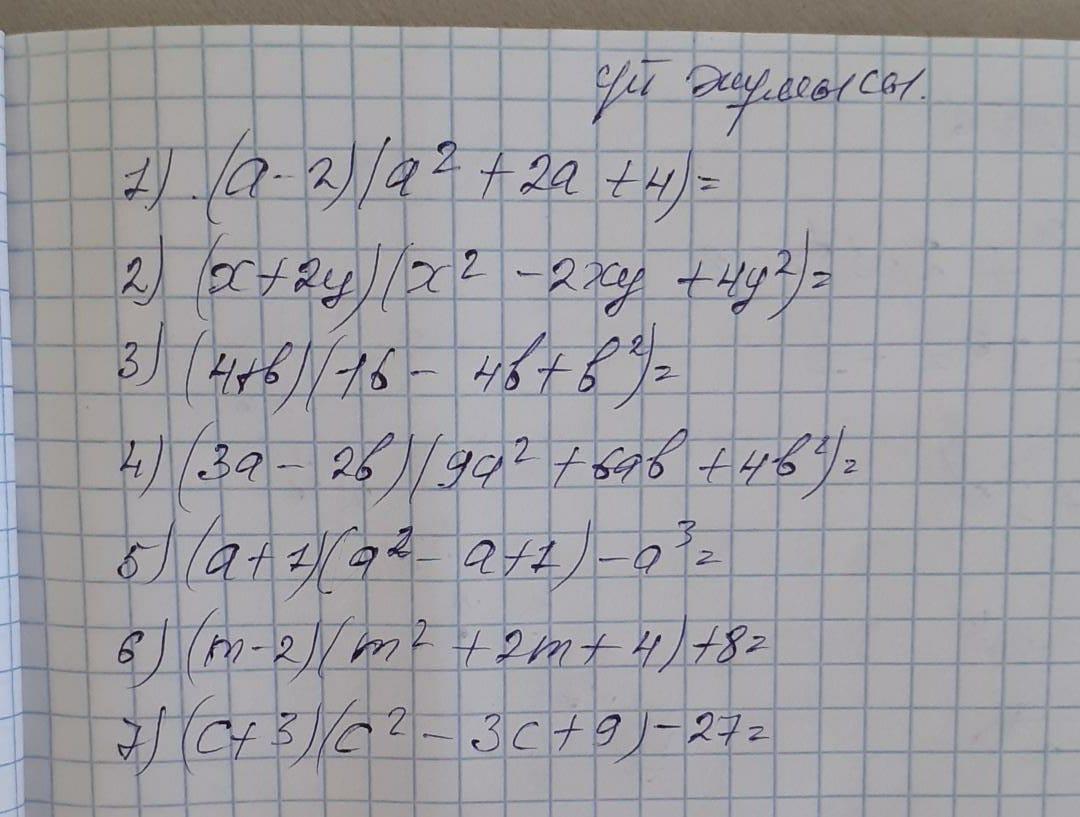 үй жұмысы.
1) (a-2)(a² + 2a + 4)=
2) (x+2y)(x² - 2xy + 4y²)=
3) (4+b)(16 - 4b + b²)=
4) (3a - 2b)(9a² + 6ab + 4b²)=
5) (a+1)(a² - a+1) - a³=
6) (m-2)(m² + 2m + 4) + 8=
7) (c+3)(c² - 3c + 9) - 27=